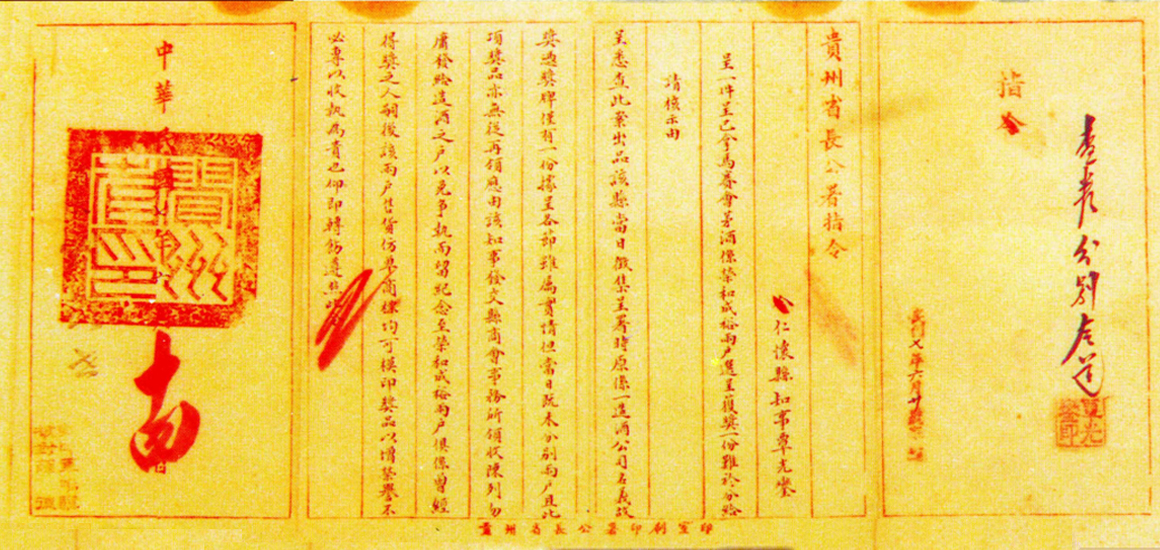 指令
貴州省長公署指令
令仁懷縣知事覃光鑾
呈一件呈已令馬賽會茅酒係榮和成裕兩户選呈獲獎一份難於分給
請核示由
呈悉查此案出品該縣當日徵集呈署時原係一造酒公司名義故
獎憑獎牌僅有一份據呈各節雖屬實情但當日既未分別兩户且此
項獎品亦無從再領應由該知事發交縣商會事務所領收陳列勿
庸發給造酒之户以免争執而留紀念至榮和成裕兩户俱係曾經
得獎之人嗣後該兩户售貨仿單商標均可模印獎品以增榮譽不
必專以收執為貴也仰即轉飭遵照此
中華民國七年六
貴州省長公署印刷室印